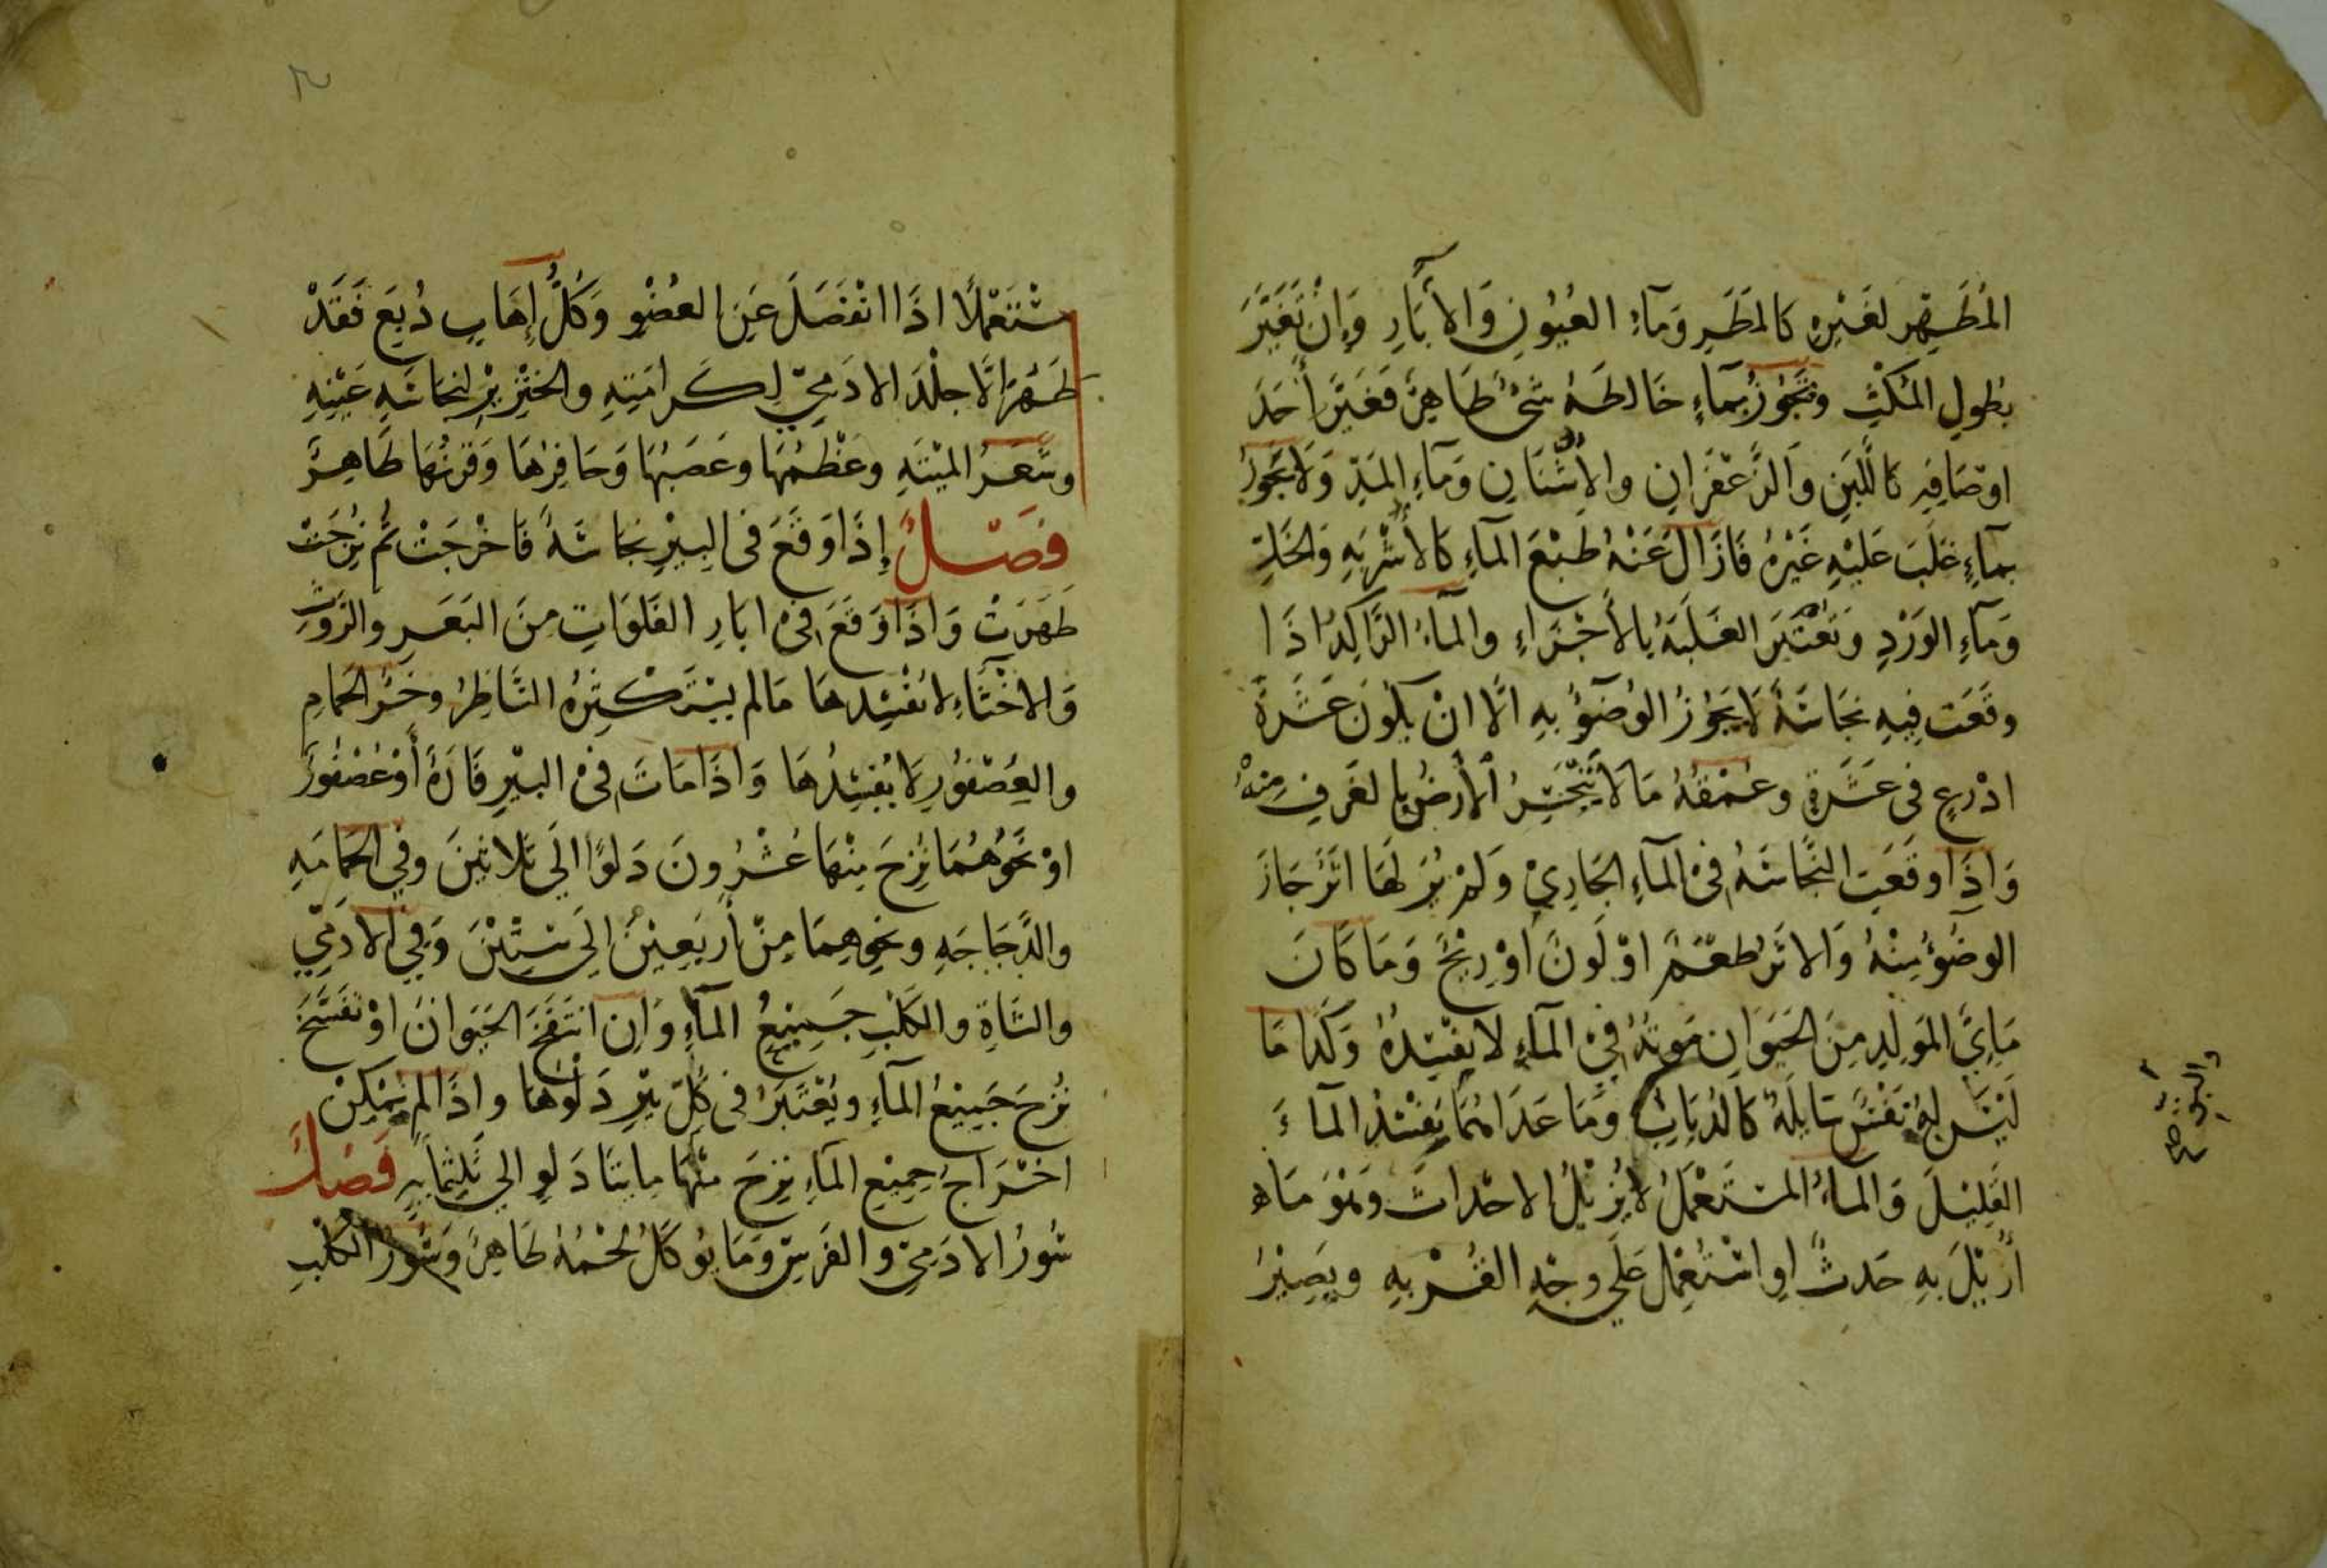 المُطَهِّر لغَيْرِه كالمَطَرِ وَمَآءِ العُيُونِ وَالأَبَارِ وَإِنْ تَغَيَّرَ
بُطولِ المُكْثِ وتَجُوزُ بمَآءٍ خَالطَهُ شَئٌ طَاهِرٌ فَغَيَّرَ أَحَدَ
اوْصَافِهِ كاللَّبَنِ وَالزَّعْفَرَانِ والاُشْنَانِ وَمَآءِ المَدِّ وَلَا يَجُوزُ
بمآءٍ غَلَبَ عَلَيْهِ غَيْرُهُ فَازَالَ عَنْهُ طَبْعَ المَآءِ كالأَشْرِبَهِ وَالخَلِّ
وَمَآءِ الوَرْدِ وَتُعْتَبَرَ الغَلَبَهُ بالأَجْزَاءِ والمَآءُ الرَّاكِدُ اذَا
وقَعَت فِيهِ نجَاسَةٌ لَا يَجُوزُ الوُضُوءُ بِهِ الَّا انْ يَكُونَ عَشَرَةَ
اذْرِعٍ فى عَشَرَةٍ وعُمْقُهُ مَا لَا يَنْحَسِرُ الأَرضُ بالغَرفِ مِنْهُ
وَاذَا وقَعَتِ النَّجَاسَهُ فىْ المَآءِ الجَارِيْ وَلَمْ يُرَ لَهَا اثَرٌ جَازَ
الوضُوْءُ مِنْهُ وَالاثَرُ طَعْمٌ اوْ لَونٌ أوْ رِيْحٌ وَمَا كَانَ
مَايِيَّ المَوْلِدِ مِنَ الحَيَوَانِ مَوتُهُ فِيْ المَآءِ لا يفْسِدُهُ وَكَذَا مَا
لَيْسَ لهُ نَفْسٌ سَايلَهٌ كَالذُبَابِ وَمَا عَدَاهُمَا يُفْسِدُ المآءَ
القَلِيْلَ وَالمَآءُ المسْتَعْمَلُ لا يُزِيْلُ الاحْدَاثَ وَهْوَ مَا
أُزِيْلَ بهِ حَدثٌ اوِ اسْتُعْمِلَ عَلَى وجْهِ القُرْبهِ ويَصِيْرُ
والبعوض
صح
مسْتَعْمَلًا اذَا انْفَصَلَ عَنِ العُضْوِ وَكُلُّ إِهَابٍ دُبِغَ فَقَدْ
طَهُرَ الَّا جلْدَ الادَمِيّ لكَرَامَتِهِ والخِنْزِيْرِ لنجَاسَهِ عَيْنِهِ
وشَعَرُ المَيْتَهِ وعَظْمُهَا وعَصَبُهَا وَحَافِرُهَا وَقَرنُهَا طَاهِرٌ
فصَلٌ إِذَا وَقَعَ فى البِيْرِ نجَاسَةٌ فَاخْرِجَتْ ثُم نُزِحَتْ
طَهُرَتْ وَاذَا وَقَعَ فىْ ابَارِ الفَلَوَاتِ مِنَ البَعَرِ والرَّوْثِ
وَالاخْثَآءِ لا يُفْسِدهَا مَا لم يَسْتَكْثِرْهُ النَّاظِرُ وخَرْءُ الحَمامِ
والعُصْفُورِ لَا يُفْسِدُهَا وَاذَا مَاتَ فىْ البِيْرِ فَارَةٌ أوْ عُصْفُورٌ
اوْ نَحْوُهُمَا نُزِحَ مِنْهَا عُشْرُونَ دَلوًا الَى ثَلاثِيْنَ وفِي الحمَامَهِ
والدَّجَاجَهِ ونحوِهِمَا مِنْ أَرْبَعِيْنَ الَى سِتِّيْنَ وَفِي الادَمِّي
والشَاةِ والكَلبِ جَمِيْعُ المآءِ وَانِ انْتَفَخَ الحَيَوانَ اوْ تَفَسَّخَ
نُزِحَ جَمِيْعُ المآءِ ويُعْتَبَرُ فى كُلِّ بِيْرٍ دَلْوُهَا واذَا لم يُمْكِنْ
اخْرَاجُ جمِيْعِ المَآءِ نُزِحَ منْهَا مايتَا دَلوٍ الي ثَلثِمَايَهٍ فَصَلٌ
سُورُ الادَمِيّ والفَرَسِ وَمَا يُوكَلُ لحْمُهُ طَاهِرٌ وَسُورُ الكَلْبِ